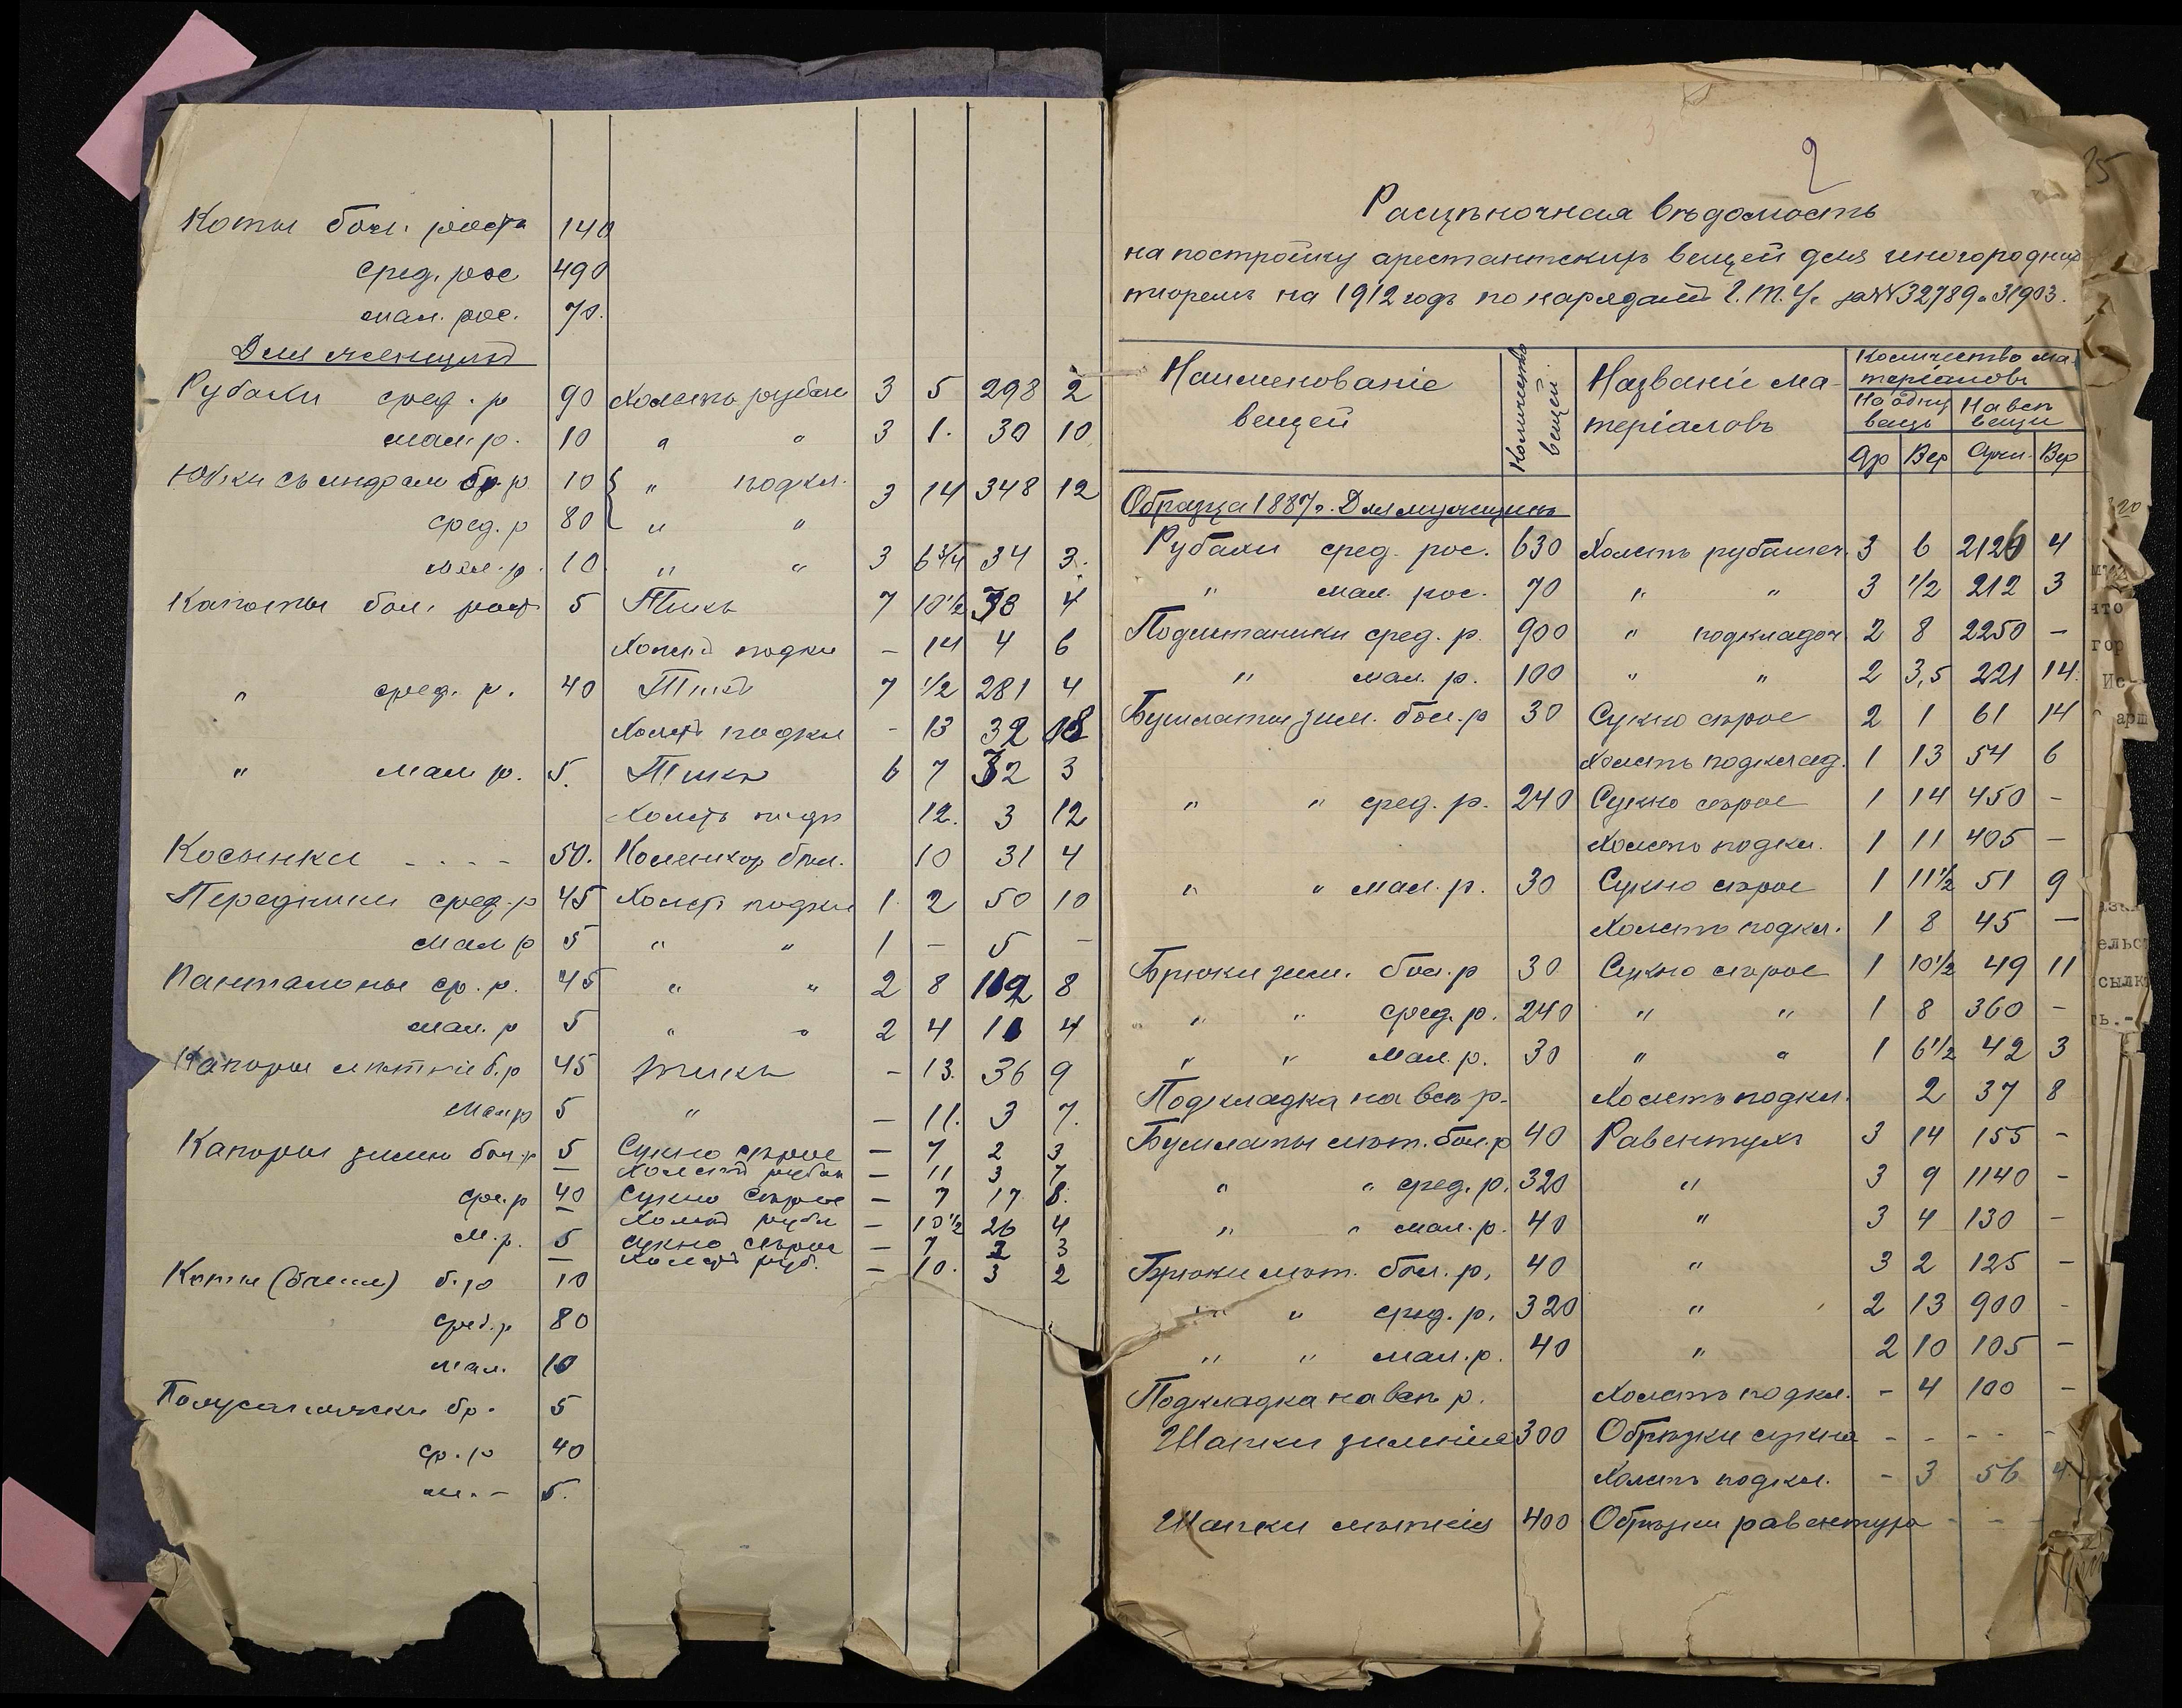 Коты бол. роста 140
сред. рос 490
мал. рос. 70.
Для женщинъ
Рубахи сред. р 90 Холстъ рубаш 3 5 298 2
мал. р. 10 " " 3 1. 30 10
Юбки съ лифом б. р. 10 " подкл. 3 14 348 12
сред. р 80 " "
мал. р. 10. " " 3 6 3/4 34 3.
Капоты бол. рост 5 Тикъ 7 10 1/2 38 4
Холстъ подкл – 14 4 6
" сред. р. 40 Тикъ 7 1/2 281 4
Холстъ подкл - 13 32 8
" мал р. 5. Тикъ 6 7 32 3
Холстъ подк 12. 3 12
Косынки - - - - 50. Коленкор бел. 10 31 4
Передники сред. р 45 Холстъ подкл 1 2 50 10
мал р 5 " " 1 – 5 –
Панталоны ср. р. 45 " " 2 8 112 8
мал. р 5 " " 2 4 11 4
Капоры лѣтніе б. р 45 Тикъ – 13. 36 9
мал р 5 " – 11. 3 7.
Капоры зимн бол. р 5 Сукно сѣрое – 7 2 3
Холстъ рубаш – 11 3 7
сре. р 40 Сукно сѣрое – 7 17 8.
Холстъ рубаш – 10 1/2 26 4
М. р. 5 Сукно сѣрое – 7 2 3
Холстъ руб. – 10. 3 2
Коты б. р 10
сред. р 80
мал. 10
Полусапожки бр. 5
ср. р 40
м. – 5.
2
Расцѣночная вѣдомость
на постройку арестантскихъ вещей для иногородних
тюремъ на 1912 годъ по нарядамъ Г.Т.У. за №№ 32789 и 31903.
Наименованіе вещей
Количество вещей.
Названіе матеріаловъ
Количество матеріаловъ
На одну вещь На всѣ вещи
Ар Вер Арш. Вер
Образца 1887 г. Для мужчинъ
Рубахи сред. рос. 630 Холстъ рубашеч. 3 6 2126 4
" мал. рос. 70 " " 3 1/2 212 3
Подштаники сред. р. 900 " подкладоч. 2 8 2250 –
" мал. р. 100 " " 2 3,5 221 14.
Бушлаты зим. бол. р 30 Сукно сѣрое 2 1 61 14
Холстъ подклад. 1 13 54 6
" " сред. р. 240 Сукно сѣрое 1 14 450 –
Холстъ подкл. 1 11 405 –
" " мал. р. 30 Сукно сѣрое 1 11 1/2 51 9
Холстъ подкл. 1 8 45 –
Брюки зим. бол. р 30 Сукно сѣрое 1 10 1/2 49 11
" " сред. р. 240 " " 1 8 360 –
" " мал. р. 30 " " 1 6 1/2 42 3
Подкладка на всѣ р. Холстъ подкл. 2 37 8
Бушлаты лѣт. бол. р 40 Равентухъ 3 14 155 –
" " сред. р. 320 " 3 9 1140 –
" " мал. р. 40 " 3 4 130 –
Брюки лѣт. бол. р. 40 " 3 2 125 –
" " сред. р. 320 " 2 13 900 -
" " мал. р. 40 " 2 10 105 –
Подкладка на всѣ р. Холстъ подкл. - 4 100 –
Шапки зимнія 300 Обрѣзки сукна - - - - -
Холстъ подкл. - 3 56 4
Шапки лѣтнія 400 Обрѣзки равентуха - - -
что
гор
Ис
арш
ельст
сылк
ь.-